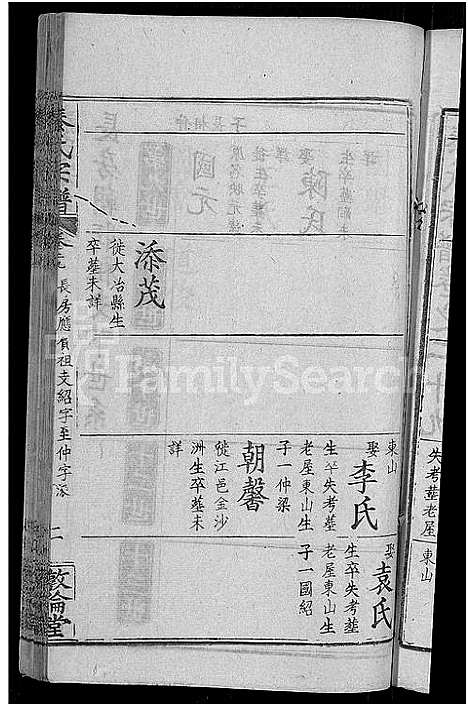 失考塟老屋
東山
東山
娶李氏
生卒失考塟
老屋東山生
子一仲梁
朝馨
徙江邑金沙
洲生卒塟未
詳
娶袁氏
生卒失考塟
老屋東山生
子一國紹
添茂
徙大冶縣生
卒塟未詳
氏宗譜
長房應負祖支紹字至仲字派
二
敦倫堂
FamilySearch